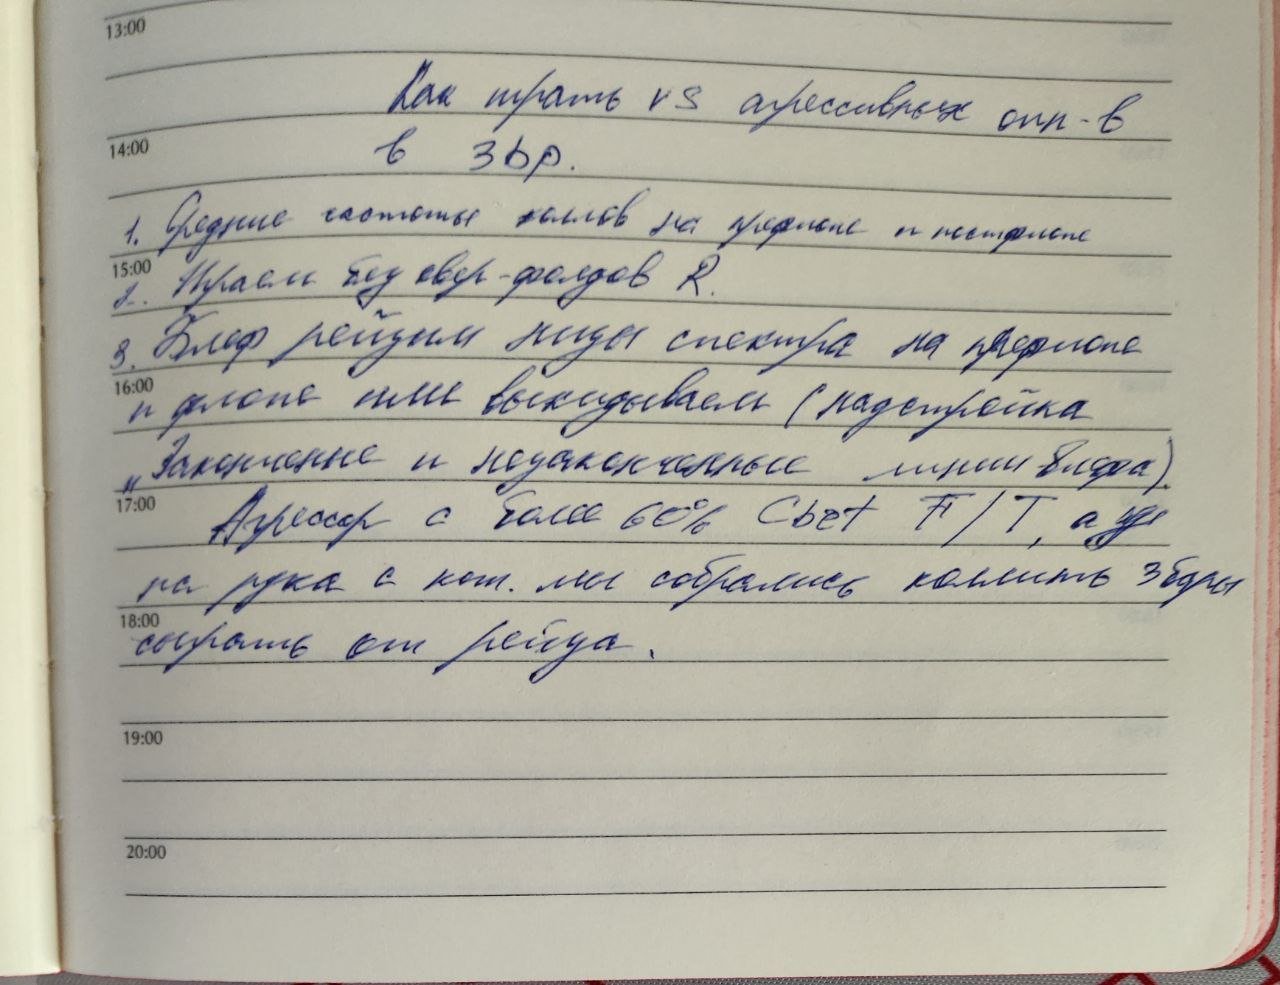 13:00
Как играть vs агрессивных опп-в
14:00
в 3bp.
1. Средние частоты коллов на префлопе и постфлопе
15:00
2. Играем без овер-фолдов R.
3. Блеф рейзим низы спектра на префлопе
16:00
и флопе или выкидываем (надстройка
"Законченные и незаконченные линии блефа).
17:00
Агрессор с более 60% Cbet F/T, а
на рука с кот. мы собрались коллить 3беты
18:00
сыграть от рейза.
19:00
20:00